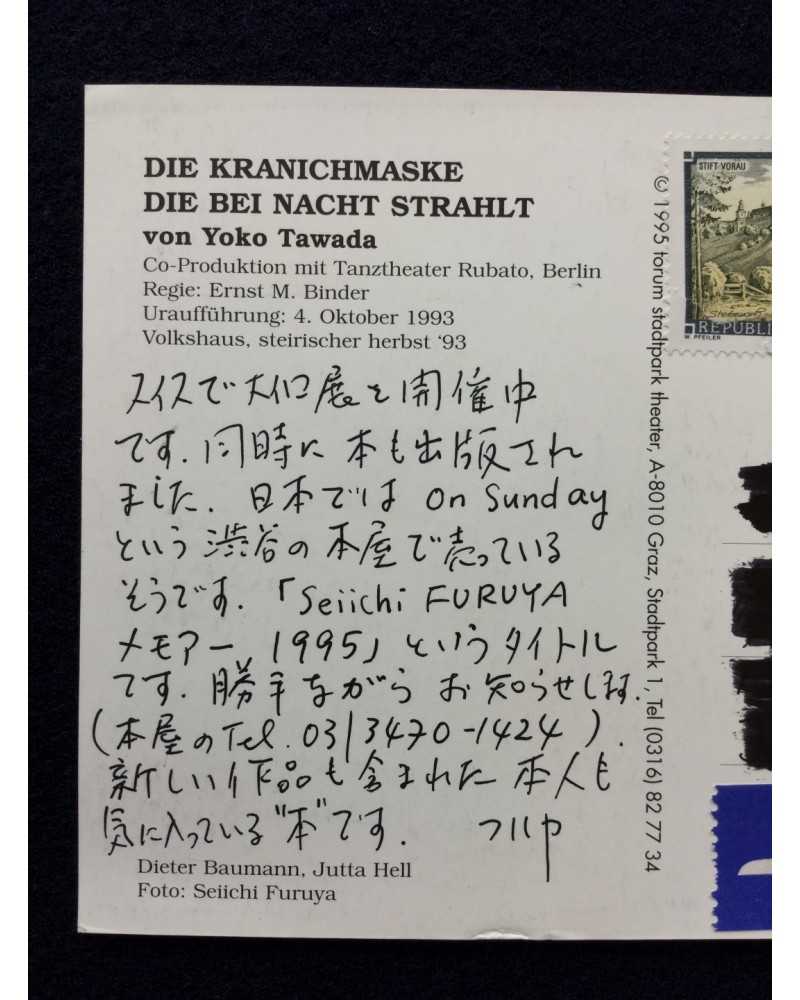 DIE KRANICHMASKE
DIE BEI NACHT STRAHLT
von Yoko Tawada
Co-Produktion mit Tanztheater Rubato, Berlin
Regie: Ernst M. Binder
Uraufführung: 4. Oktober 1993
Volkshaus, steirischer herbst ‘93
スイスで大個展を開催中
です. 同時に本も出版され
ました. 日本では on Sunday
という渋谷の本屋で売っている
そうです.「Seiichi FURUYA
メモアー 1995」というタイトル
です. 勝手ながらお知らせします.
(本屋のTel. 03/3470-1424).
新しい作品も含まれた本人も
気に入っている"本"です.
Dieter Baumann, Jutta Hell
Foto: Seiichi Furuya
© 1995 forum stadtpark theater, A-8010 Graz, Stadtpark 1, Tel (0316) 82 77 34
STIFT VORAU
REPUBLI
W. PFEILER